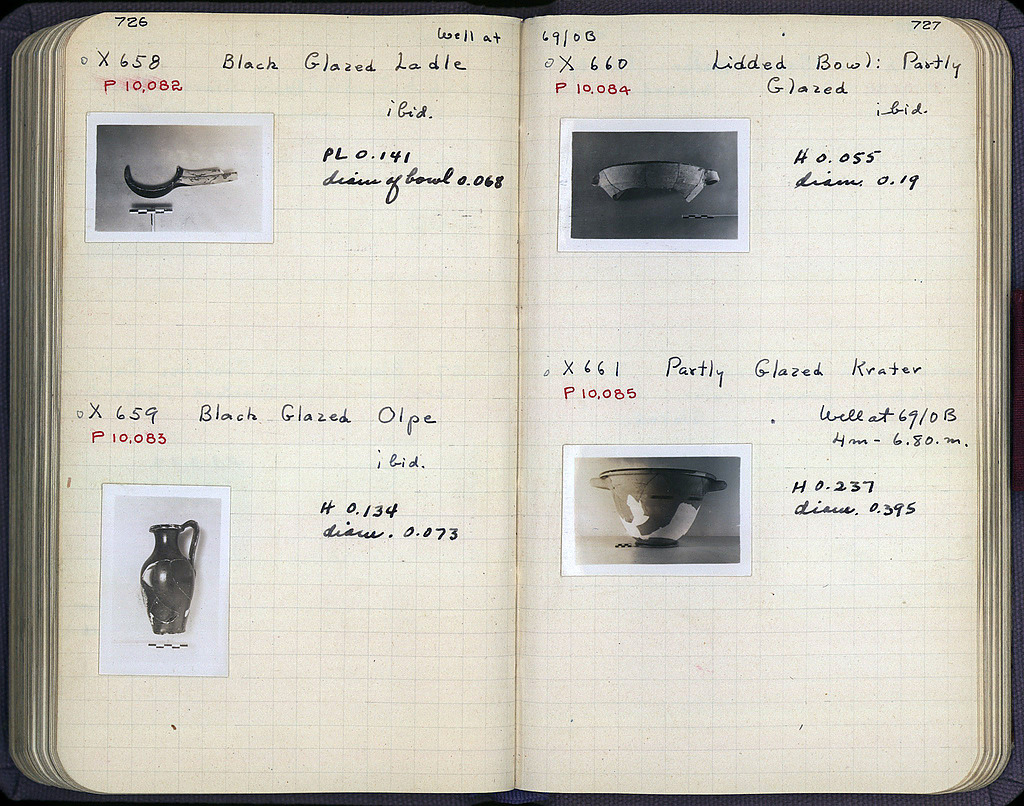 726
Well at
X 658 Black Glazed Ladle
P 10,082
ibid.
PL 0.141
diam of bowl 0.068
X 659 Black Glazed Olpe
P 10,083
ibid.
H 0.134
diam. 0.073
727
69/ΟΒ
X 660 Lidded Bowl: Partly
P 10,084 Glazed
ibid.
H 0.055
diam. 0.19
X 661 Partly Glazed Krater
P 10,085
Well at 69/ΟΒ
4m - 6.80.m.
H 0.237
diam. 0.395